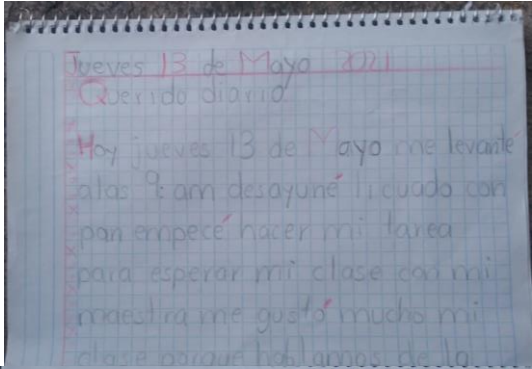 Jueves 13 de Mayo 2021
Querido diario.
Hoy jueves 13 de Mayo me levanté
a las 9:am desayuné licuado con
pan empecé hacer mi tarea
para esperar mi clase con mi
maestra me gustó mucho mi
clase porque hablamos de la